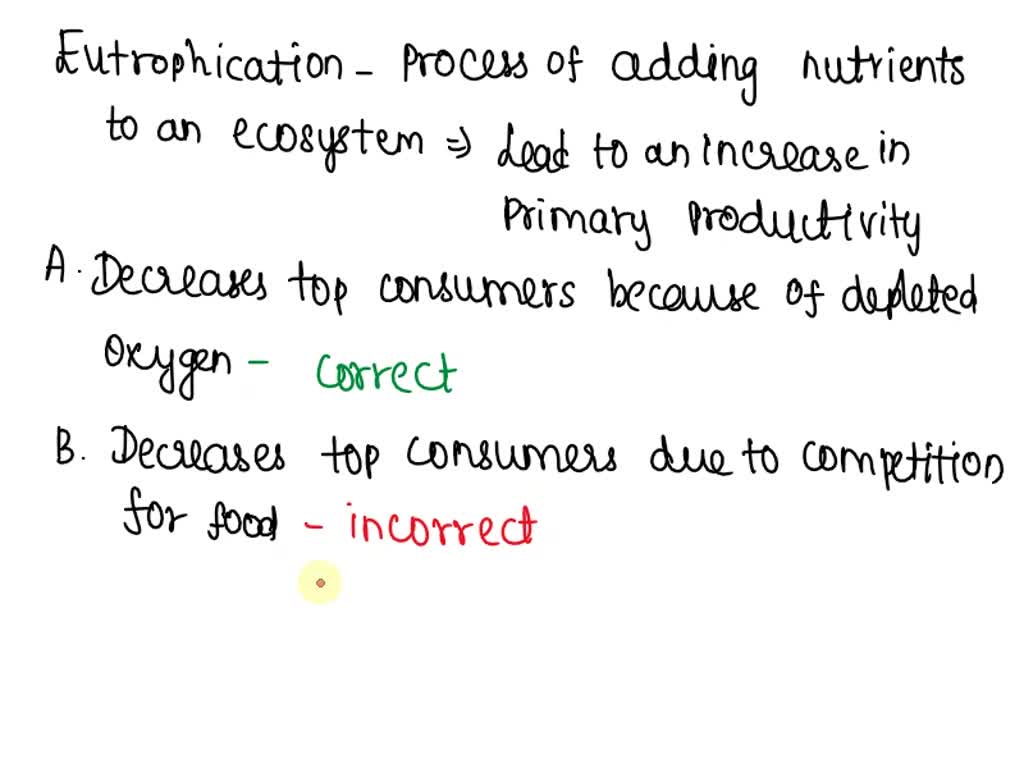 Eutrophication - Process of adding nutrients
to an ecosystem ⇒ Lead to an increase in
Primary Productivity
A. Decreases top consumers because of depleted
Oxygen - correct
B. Decreases top consumers due to competition
for food - incorrect